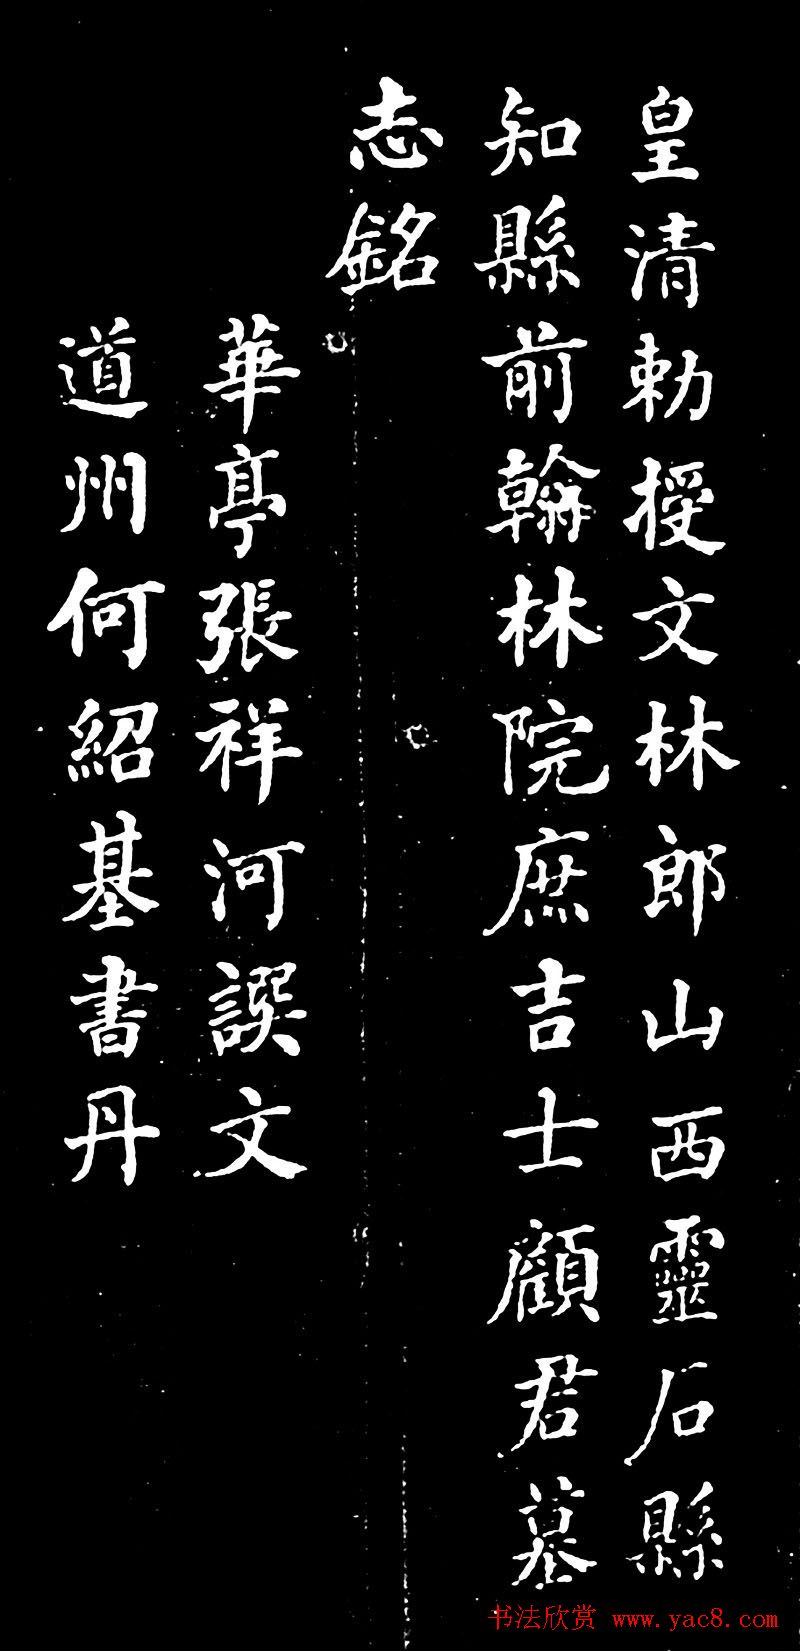 皇清勅授文林郎山西靈石縣
知縣前翰林院庶吉士顧君墓
志銘
華亭張祥河譔文
道州何紹基書丹
书法欣赏 www.yac8.com